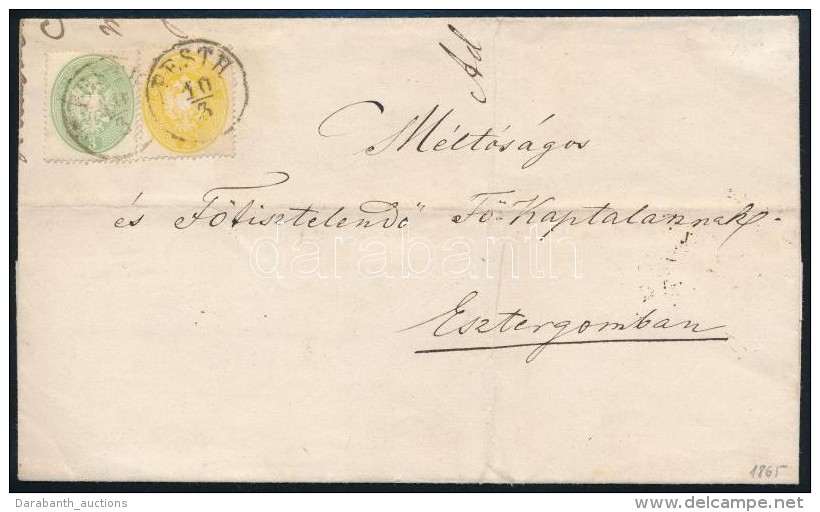 Ad
PESTH
10
3
PESTH
10
3
Méltóságos
és Főtisztelendő Fő-Kaptalannak
darabanth
Esztergomban
1865
Darabanth_auctions
delcampe.net